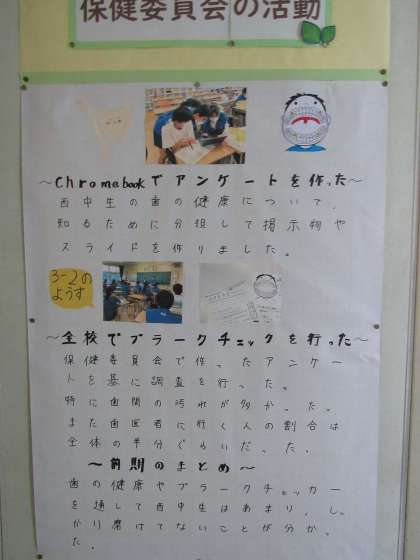 保健委員会の活動
～Chromebookでアンケートを作った～
西中生の歯の健康について、
知るために分担して掲示物や
スライドを作りました。
3-2の
ようす
～全校でプラークチェックを行った～
保健委員会で作ったアンケー
トを基に調査を行った。
特に歯間の汚れが多かった。
また歯医者に行く人の割合は
全体の半分ぐらいだった。
～前期のまとめ～
歯の健康やプラークチェッカー
を通して西中生はあまり、し。
かり磨けてないことが分かっ
た。